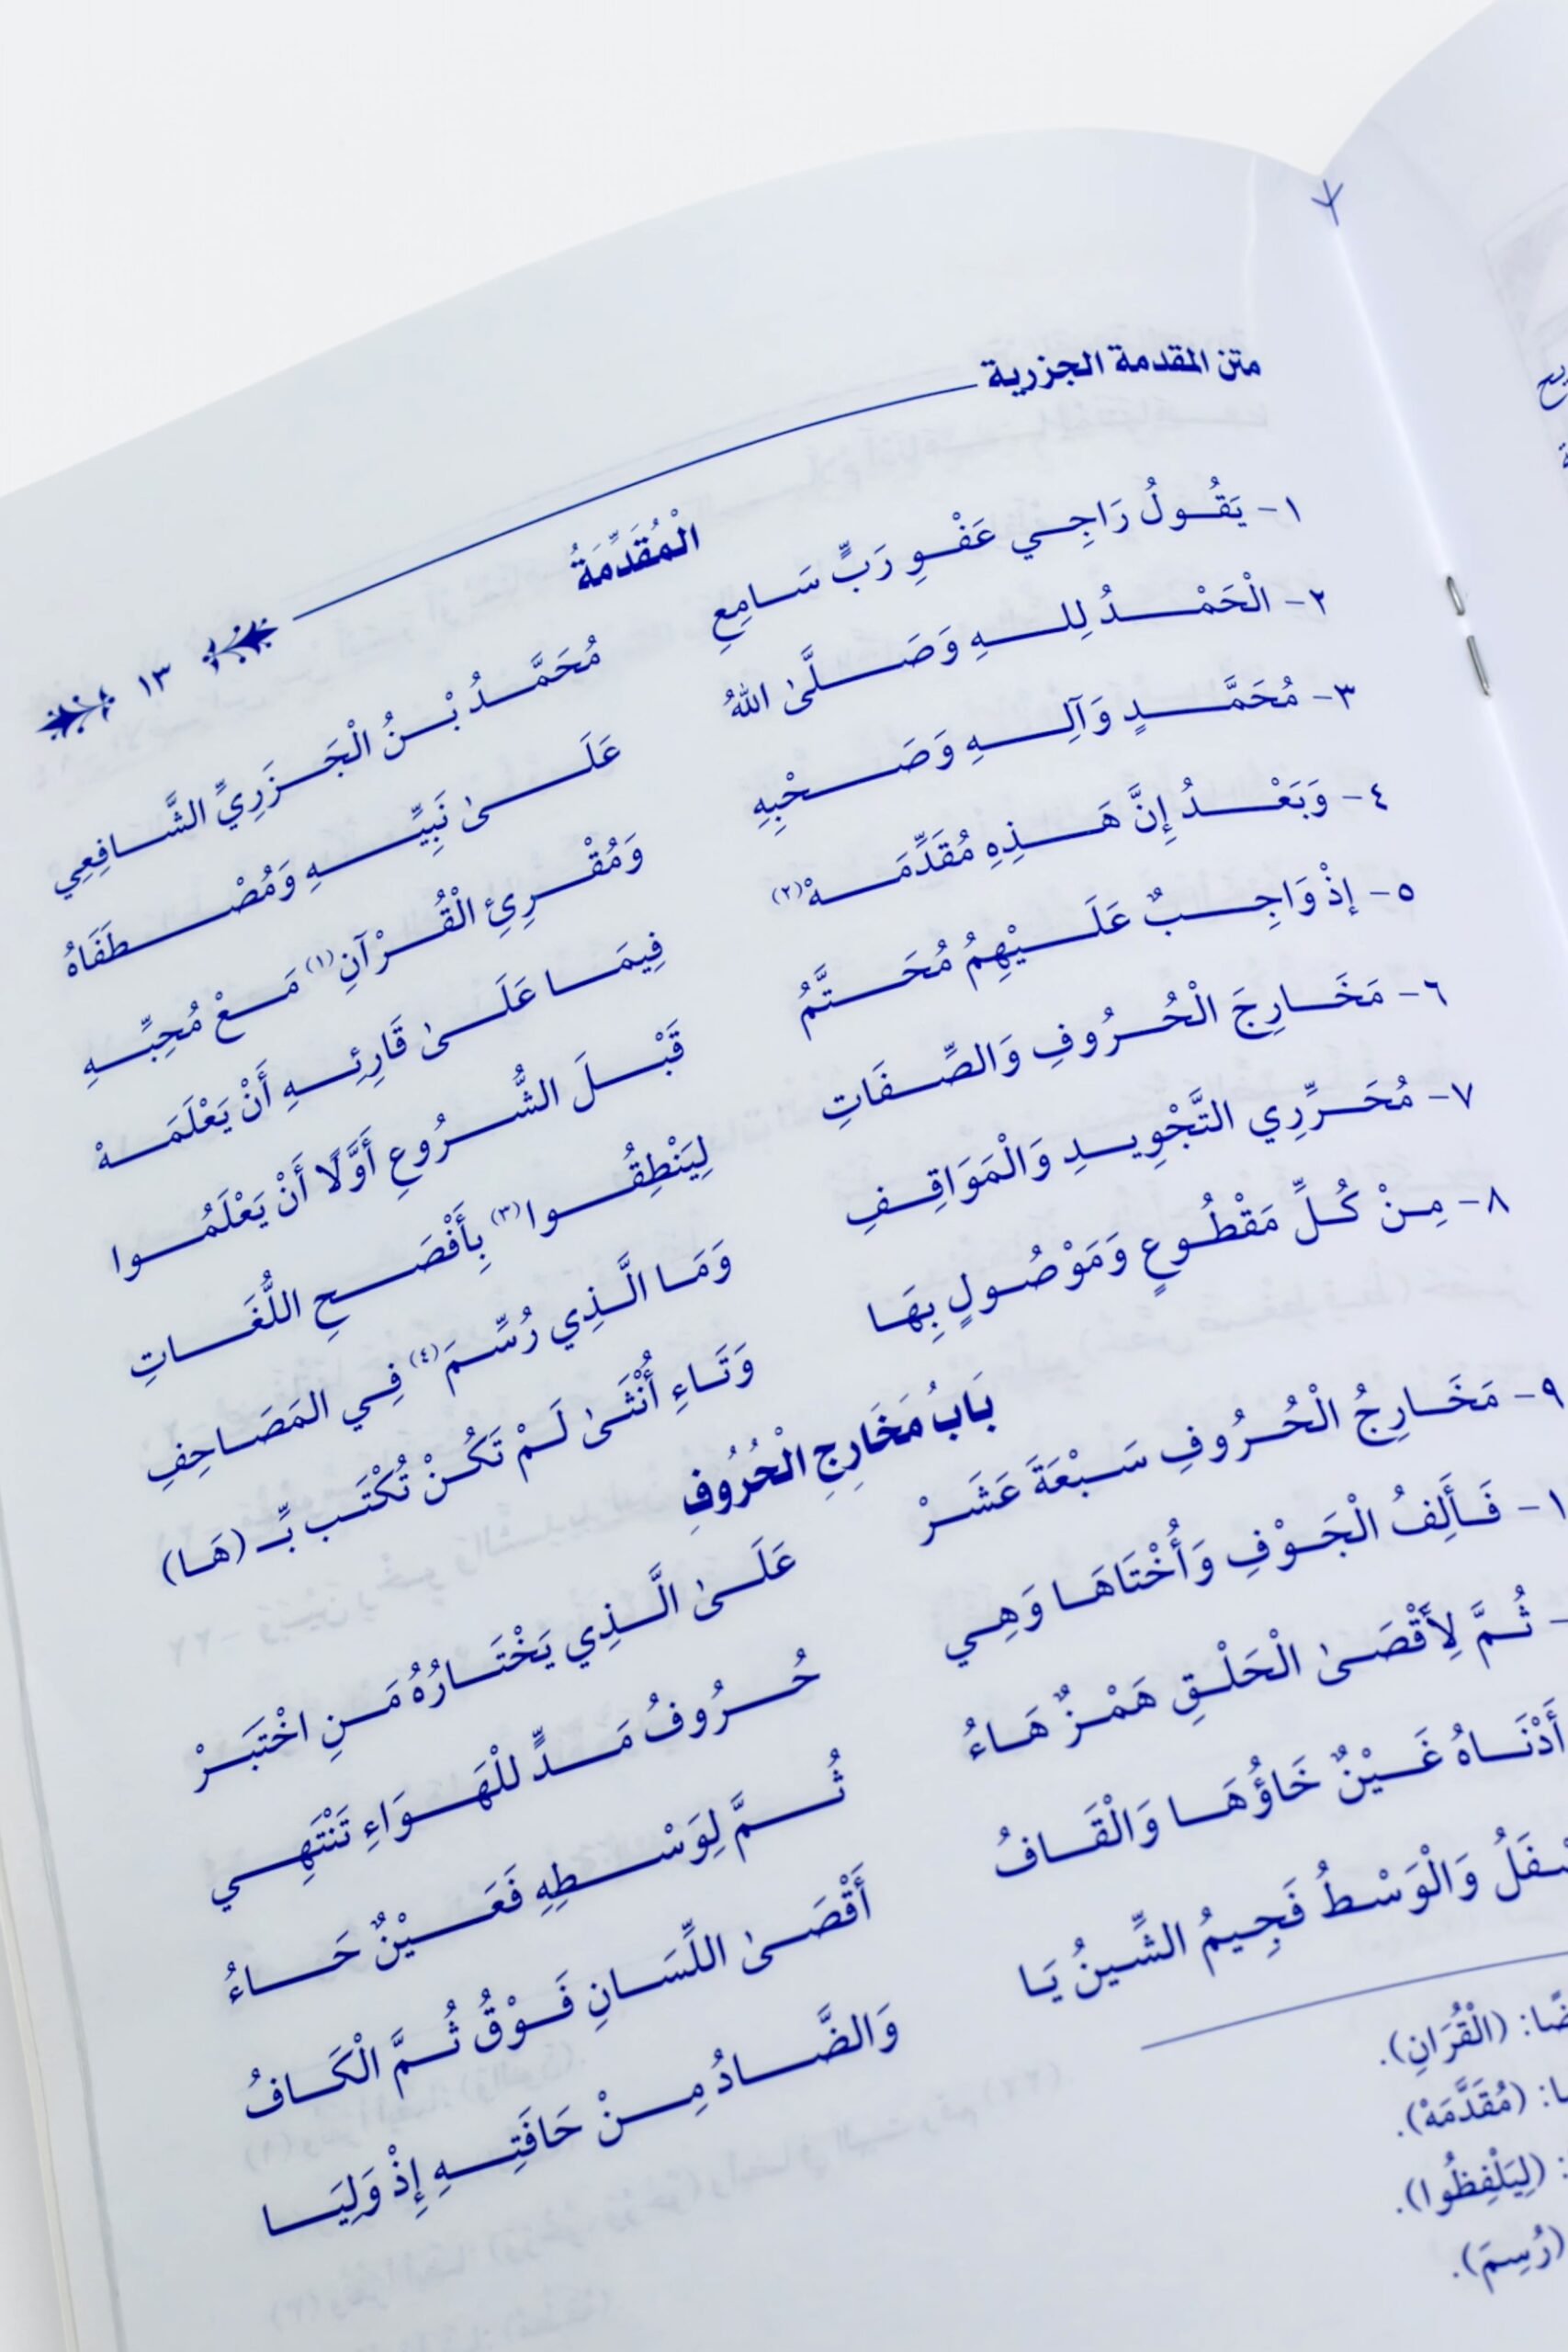 متن المقدمة الجزرية ١٣
الْمُقَدِّمَةُ
١- يَقُولُ رَاجِي عَفْوِ رَبٍّ سَامِعِ مُحَمَّدُ بْنُ الْجَزَرِيِّ الشَّافِعِي
٢- الْحَمْدُ لِلهِ وَصَلَّىٰ اللهُ عَلَىٰ نَبِيِّهِ وَمُصْطَفَاهُ
٣- مُحَمَّدٍ وَآلِهِ وَصَحْبِهِ وَمُقْرِئِ الْقُرْآنِ(١) مَعْ مُحِبِّهِ
٤- وَبَعْدُ إِنَّ هَذِهِ مُقَدِّمَهْ(٢) فِيمَا عَلَىٰ قَارِئِهِ أَنْ يَعْلَمَهْ
٥- إِذْ وَاجِبٌ عَلَيْهِمُ مُحَتَّمُ قَبْلَ الشُّرُوعِ أَوَّلًا أَنْ يَعْلَمُوا
٦- مَخَارِجَ الْحُرُوفِ وَالصِّفَاتِ لِيَنْطِقُوا(٣) بِأَفْصَحِ اللُّغَاتِ
٧- مُحَرِّرِي التَّجْوِيدِ وَالْمَوَاقِفِ وَمَا الَّذِي رُسِّمَ(٤) فِي المَصَاحِفِ
٨- مِنْ كُلِّ مَقْطُوعٍ وَمَوْصُولٍ بِهَا وَتَاءِ أُنْثَىٰ لَمْ تَكُنْ تُكْتَب بِّـ (هَا)
بَابُ مَخَارِجِ الْحُرُوفِ
٩- مَخَارِجُ الْحُرُوفِ سَبْعَةَ عَشَرْ عَلَىٰ الَّذِي يَخْتَارُهُ مَنِ اخْتَبَرْ
١- فَأَلِفُ الْجَوْفِ وَأُخْتَاهَا وَهِي حُرُوفُ مَدٍّ للْهَوَاءِ تَنْتَهِي
- ثُمَّ لِأَقْصَىٰ الْحَلْقِ هَمْزٌ هَاءُ ثُمَّ لِوَسْطِهِ فَعَيْنٌ حَاءُ
أَدْنَاهُ غَيْنٌ خَاؤُهَا وَالْقَافُ أَقْصَىٰ اللِّسَانِ فَوْقُ ثُمَّ الْكَافُ
سْفَلُ وَالْوَسْطُ فَجِيمُ الشِّينُ يَا وَالضَّادُ مِنْ حَافَتِهِ إِذْ وَلِيَا
ضًا: (الْقُرَانِ).
ا: (مُقَدَّمَهْ).
: (لِيَلْفِظُوا).
(رُسِمَ).